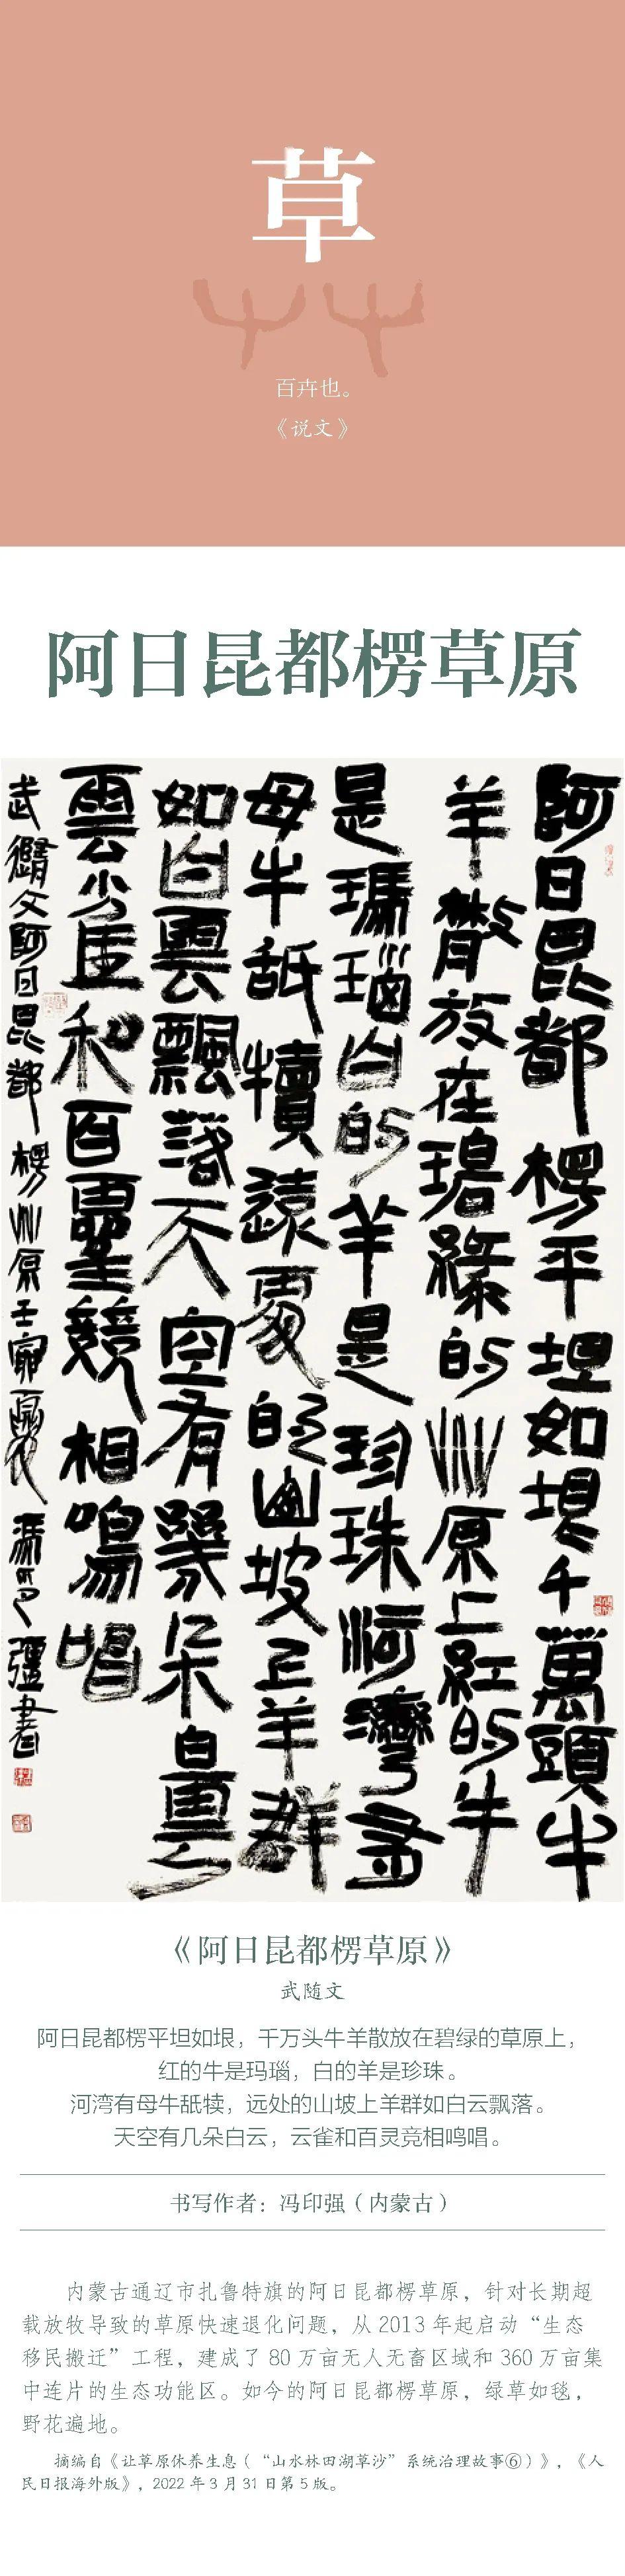 草
百卉也。
《说文》
阿日昆都楞草原
阿日昆都楞平坦如垠千萬頭牛
羊散放在碧綠的艸原上紅的牛
是瑪瑙白的羊是珍珠河灣有
母牛舐犢遠處的山坡上羊群
如白雲飄落天空有幾朵白雲
雲雀和百靈競相鳴唱
武隨文阿日昆都楞艸原壬寅夏馮印强書
《阿日昆都楞草原》
武随文
阿日昆都楞平坦如垠，千万头牛羊散放在碧绿的草原上，
红的牛是玛瑙，白的羊是珍珠。
河湾有母牛舐犊，远处的山坡上羊群如白云飘落。
天空有几朵白云，云雀和百灵竞相鸣唱。
书写作者：冯印强（内蒙古）
内蒙古通辽市扎鲁特旗的阿日昆都楞草原，针对长期超
载放牧导致的草原快速退化问题，从 2013 年起启动“生态
移民搬迁”工程，建成了 80 万亩无人无畜区域和 360 万亩集
中连片的生态功能区。如今的阿日昆都楞草原，绿草如毯，
野花遍地。
摘编自《让草原休养生息（“山水林田湖草沙”系统治理故事⑥）》，《人
民日报海外版》，2022 年 3 月 31 日第 5 版。